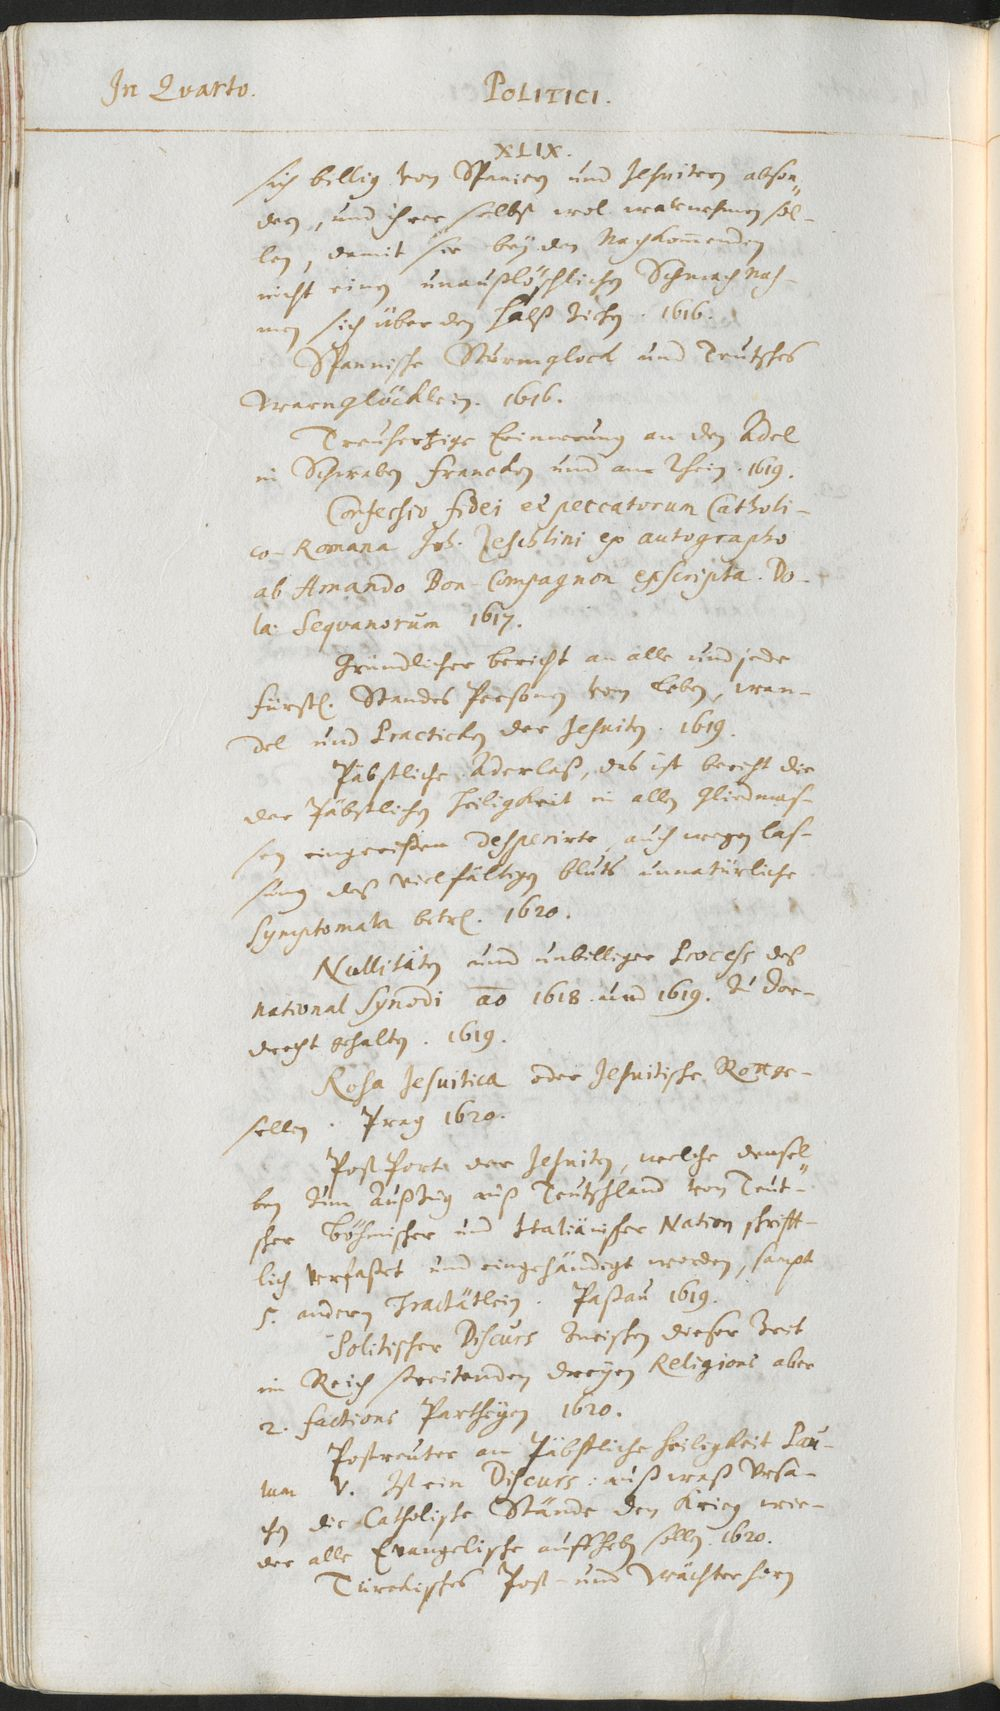 In Qvarto.
POLITICI.
XLIX.
sich billig von Spanien und Jesuiten abson„
dern, und ihrer selbst wol warnehmen sol-
len, damit sie bey den Nachkom̄enden
nicht einen unaußlöschlichen Schmach Nah-
men sich über den Halß ziehen. 1616.
Spannische Sturmglock und Teutsches
Warnglöcklein. 1616.
Treuhertzige Erinnerung an den Adel
in Schwaben Francken und am Rhein. 1619.
Confessio fidei et peccatorum Catholi-
co-Romana Joh. Zeschlini ex autographo
ab Amando Bon-Compagnon exscripta. Do-
la Seqvanorum 1617.
Gründlicher bericht an alle und jede
Fürstl. Standes Personen vom Leben, Wan-
del und Practicken der Jesuiten. 1619.
Päbstliche Aderlaß, das ist bericht die
der Päbstlichen Heiligkeit in allen gliedmas-
sen eingerissene, auch wegen las-
sung deß vielfältigen bluts unnatürliche
Symptomata betrl. 1620.
Nullitäten und unbilliger Process deß
national Synodi ao 1618 und 1619. zu Dor-
drecht gehalten. 1619.
Rosa Jesuitica oder Jesuitische Rottge-
sellen. Prag 1620.
Post Porto der Jesuiten, welche densel„
ben zum Außzug auß Teutschland von Teut-
scher Böhmischer und Italiänischer Nation schrifft-
lich verfasset und eingehändigt worden, sampt
5. andern Tractätlein. Passau 1619.
Politischer Discurs zwischen dieser Zeit
im Reich streitenden dreyen Religions aber
2. factions Partheyen 1620.
Postreuter an Päbstliche Heiligkeit Pau-
lum V. Ist ein Discurs: auß waß Vrsa-
chen die Catholische Stände den Krieg wie-
der alle Evangelische auffheben sollen. 1620.
Türckisches Post- und Wächterhorn